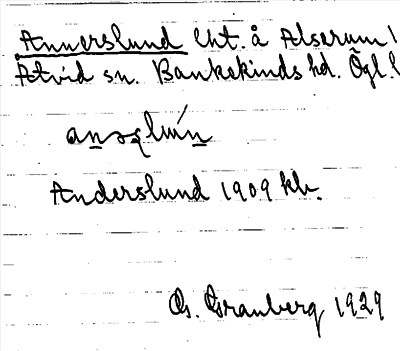 Annerslund lht. å Alserum!
Åtvid sn. Bankekinds hd. Ögl.!
Anderslund 1909 kb.
G. Granberg 1929